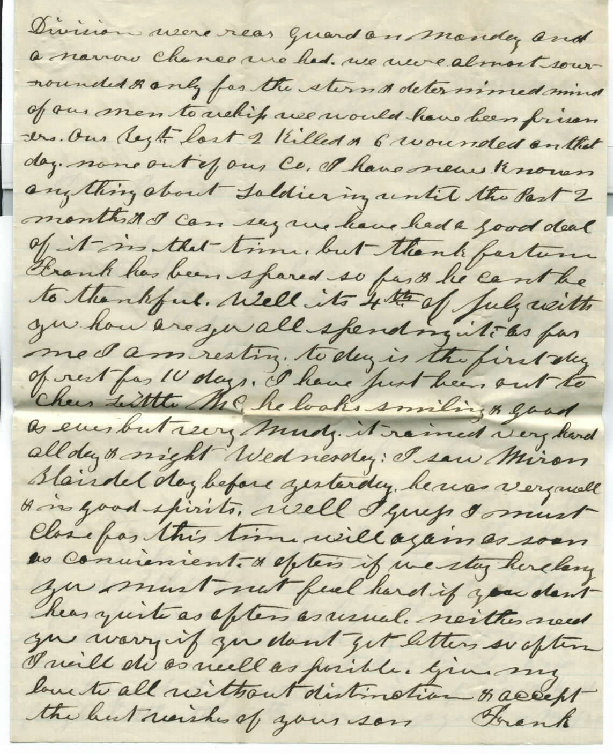 Division were rear guard on Monday and
a narrow chance we had. we were almost sour-
rounded & only for the stern & determined mind
of our men to whip we would have been prison
ers. Our Regt. lost 2 Killed & 6 wounded on that
day. none out of our Co. I have never Known
anything about Soldiering until the Past 2
months & I can say we have had a good deal
of it in that time. but thank fortune
Frank has been spared so far & he cant be
to thankful. Well its 4th of July with
yu how are yu all spending it. as for
me I am resting. to day is the first day
of rest for 10 days. I have just been out to
cheer Little Mc he looks smiling & good
as ever but very Mudy. it rained very hard
all day & night Wednesday: I saw Miron
Blaisdel day before yesterday. he was very well
& in good spirits. well I guess I must
Close for this time. will again as soon
as convienient. & often if we stay here long
yu must not feel hard if you dont
hear quite as often as usual. neither need
yu worry if yu dont get letters so often
I will do as well as possible. Give my
love to all without distinction & accept
the best wishes of your son Frank